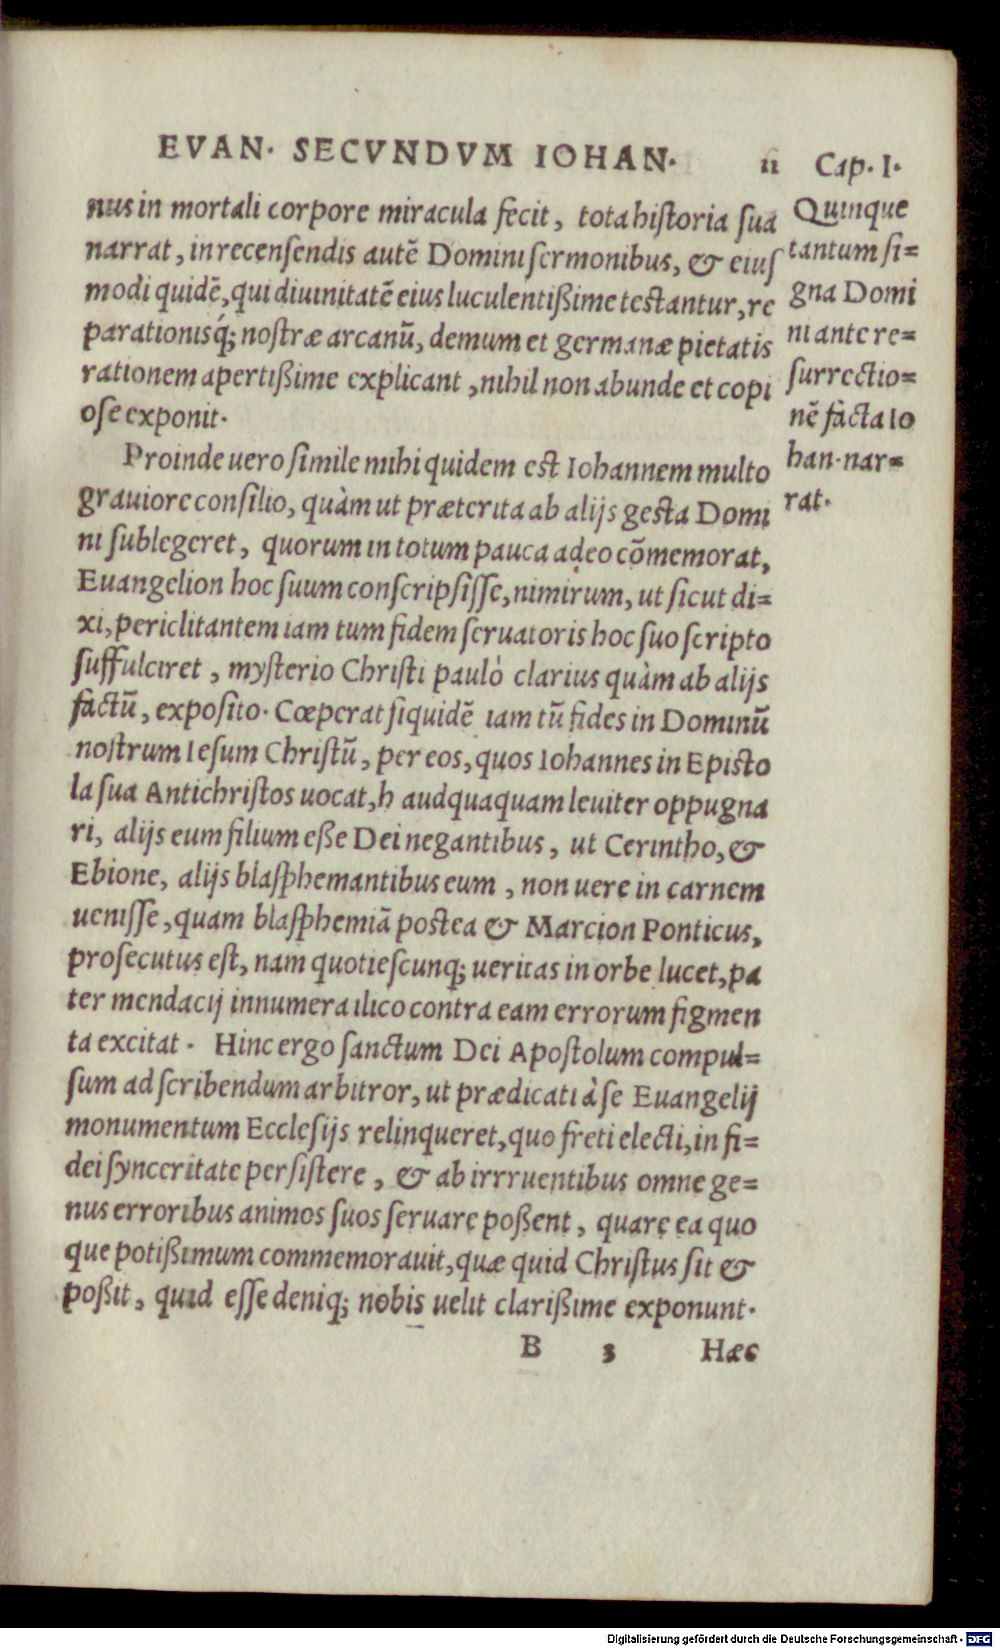 EVAN. SECVNDVM IOHAN. 11 Cap. I.
nus in mortali corpore miracula fecit, tota historia sua
narrat, in recensendis autē Domini sermonibus, & eius
modi quidē, qui diuinitatē eius luculentißime testantur, re
parationisq́; nostræ arcanū, demum et germanæ pietatis
rationem apertißime explicant, nihil non abunde et copi
ose exponit.
Proinde uero simile mihi quidem est Iohannem multo
grauiore consilio, quàm ut præterita ab alijs gesta Domi
ni sublegeret, quorum in totum pauca adeo cōmemorat,
Euangelion hoc suum conscripsisse, nimirum, ut sicut di=
xi, periclitantem iam tum fidem seruatoris hoc suo scripto
suffulciret, mysterio Christi paulò clarius quàm ab alijs
factū, exposito. Cœperat siquidē iam tū fides in Dominū
nostrum Iesum Christū, per eos, quos Iohannes in Episto
la sua Antichristos uocat, h audquaquam leuiter oppugna
ri, alijs eum filium eße Dei negantibus, ut Cerintho, &
Ebione, alijs blasphemantibus eum, non uere in carnem
uenisse, quam blasphemiā postea & Marcion Ponticus,
prosecutus est, nam quotiescunq; ueritas in orbe lucet, pa
ter mendacij innumera ilico contra eam errorum figmen
ta excitat. Hinc ergo sanctum Dei Apostolum compul=
sum ad scribendum arbitror, ut prædicati à se Euangelij
monumentum Ecclesijs relinqueret, quo freti electi, in fi=
dei synceritate persistere, & ab irrruentibus omne ge=
nus erroribus animos suos seruare poßent, quare ea quo
que potißimum commemorauit, quæ quid Christus sit &
poßit, quid esse deniq; nobis uelit clarißime exponunt.
B 3 Hæc
Quinque
tantum si=
gna Domi
ni ante re=
surrectio=
nē facta Io
han. nar=
rat.
Digitalisierung gefördert durch die Deutsche Forschungsgemeinschaft - DFG